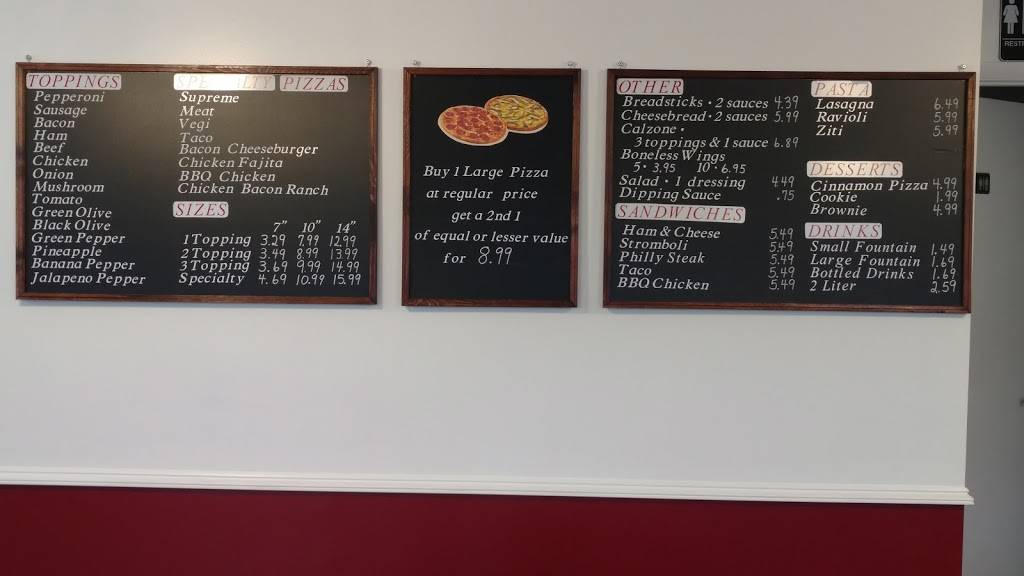 TOPPINGS
Pepperoni
Sausage
Bacon
Ham
Beef
Chicken
Onion
Mushroom
Tomato
Green Olive
Black Olive
Green Pepper
Pineapple
Banana Pepper
Jalapeno Pepper
SPECIALTY PIZZAS
Supreme
Meat
Vegi
Taco
Bacon Cheeseburger
Chicken Fajita
BBQ Chicken
Chicken Bacon Ranch
SIZES
7" 10" 14"
1 Topping 3.29 7.99 12.99
2 Topping 3.49 8.99 13.99
3 Topping 3.69 9.99 14.99
Specialty 4.69 10.99 15.99
Buy 1 Large Pizza
at regular price
get a 2nd 1
of equal or lesser value
for 8.99
OTHER
Breadsticks · 2 sauces 4.39
Cheesebread · 2 sauces 5.99
Calzone ·
3 toppings & 1 sauce 6.89
Boneless Wings
5 · 3.95 10 · 6.95
Salad · 1 dressing 4.49
Dipping Sauce .75
SANDWICHES
Ham & Cheese 5.49
Stromboli 5.49
Philly Steak 5.49
Taco 5.49
BBQ Chicken 5.49
PASTA
Lasagna 6.49
Ravioli 5.99
Ziti 5.99
DESSERTS
Cinnamon Pizza 4.99
Cookie 1.99
Brownie 4.99
DRINKS
Small Fountain 1.49
Large Fountain 1.69
Bottled Drinks 1.69
2 Liter 2.59